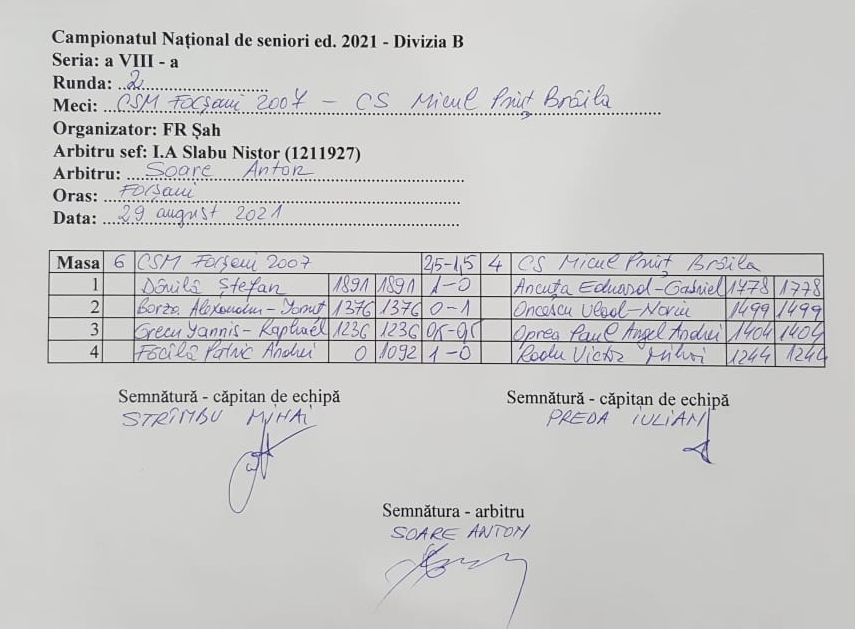 Campionatul Național de seniori ed. 2021 - Divizia B
Seria: a VIII - a
Runda: 2
Meci: CSM Focșani 2007 - CS Micul Prinț Brăila
Organizator: FR Șah
Arbitru sef: I.A Slabu Nistor (1211927)
Arbitru: Soare Anton
Oras: Focșani
Data: 29 august 2021
Masa 6 CSM Focșani 2007 2,5-1,5 4 CS Micul Prinț Brăila
1 Dănilă Ștefan 1891 1891 1-0 Ancuța Eduard-Gabriel 1778 1778
2 Borza Alexandru-Ionuț 1376 1376 0-1 Oncescu Vlad-Noris 1499 1499
3 Grecu Yannis-Raphaél 1236 1236 0,5-0,5 Oprea Paul Angel Andrei 1404 1404
4 Focilă Patric Andrei 0 1092 1-0 Radu Victor Mihai 1244 1244
Semnătură - căpitan de echipă Semnătură - căpitan de echipă
STRÎMBU MIHAI PREDA IULIAN
Semnătura - arbitru
SOARE ANTON